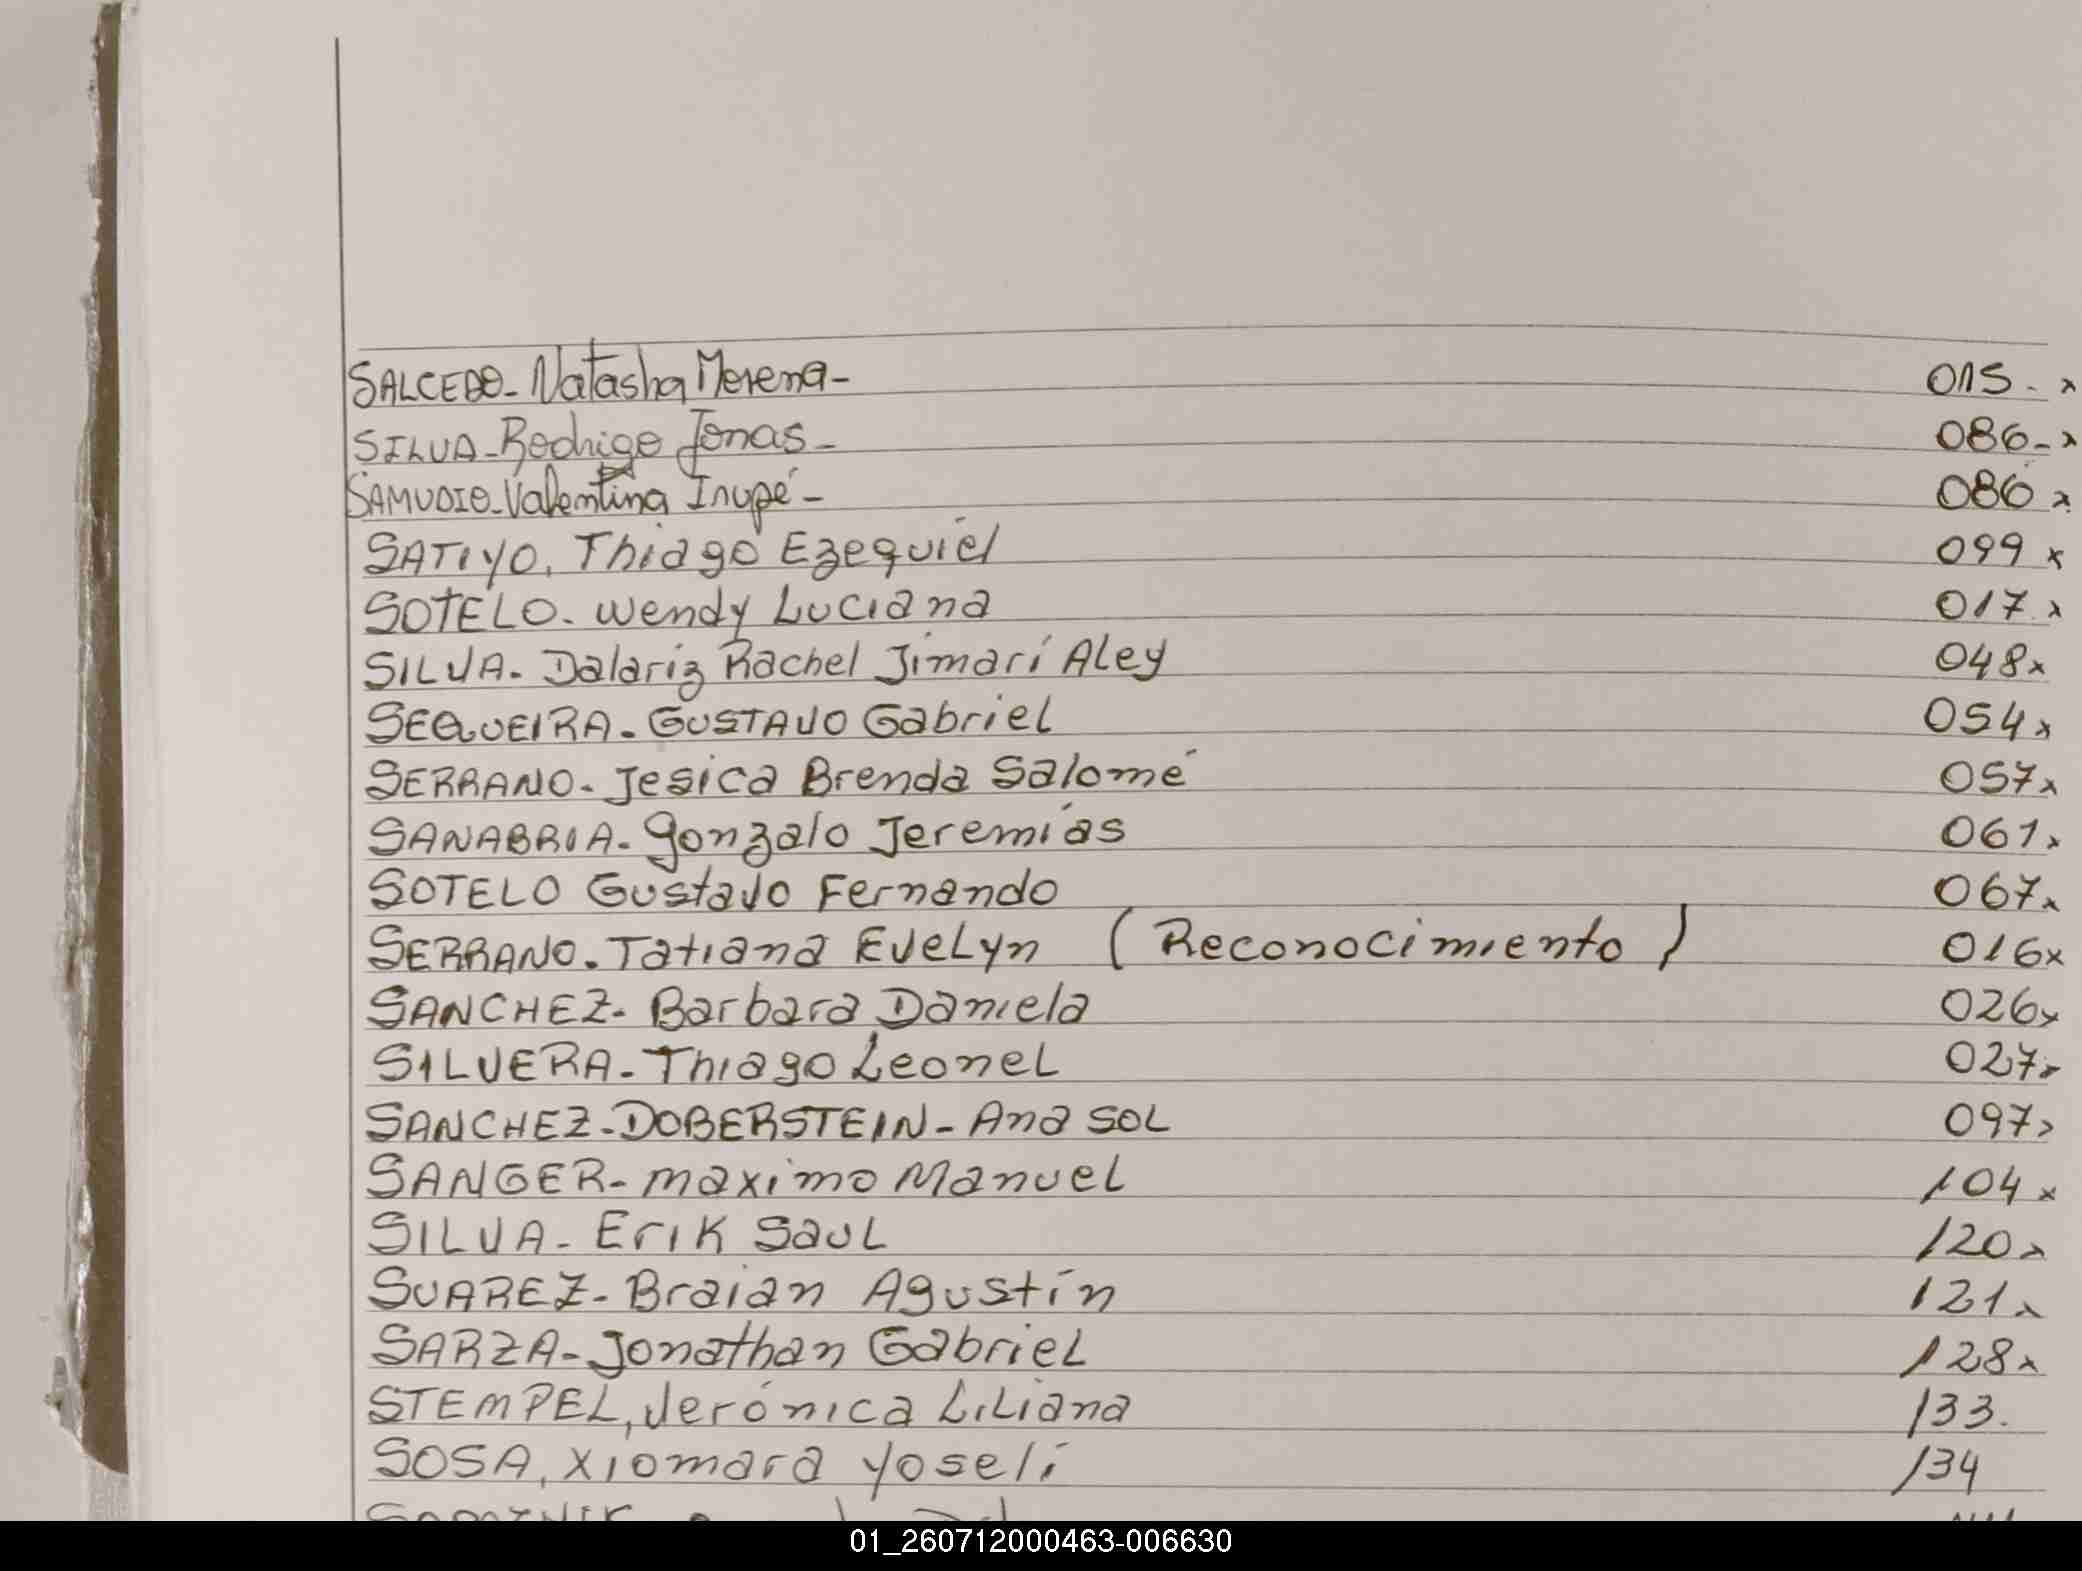 SALCEDO- Natasha Morena- 015- x
SILVA-Rodrigo Jonas- 086- x
SAMUDIO-Valentina Inupé- 086 x
SATIYO, Thiago Ezequiel 099 x
SOTELO- Wendy Luciana 017 x
SILVA- Dalariz Rachel Jimarí Aley 048 x
SEQUEIRA- GUSTAVO Gabriel 054 x
SERRANO- Jesica Brenda Salomé 057 x
SANABRIA- Gonzalo Jeremías 061 x
SOTELO Gustavo Fernando 067 x
SERRANO. Tatiana Evelyn (Reconocimiento) 016 x
SANCHEZ- Barbara Daniela 026 x
SILVERA- Thiago Leonel 027 x
SANCHEZ-DOBERSTEIN- Ana SOL 097 x
SANGER- maximo Manuel 104 x
SILVA- Erik Saul 120 x
SUAREZ- Braian Agustín 121 x
SARZA- Jonathan Gabriel 128 x
STEMPEL, Verónica Liliana 133.
SOSA, Xiomara Yoseli 134
01_260712000463-006630